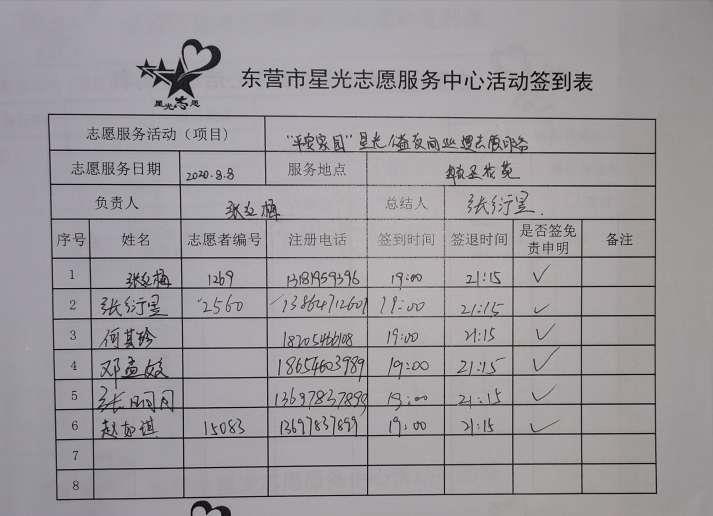 星光志愿
东营市星光志愿服务中心活动签到表
志愿服务活动（项目） "平安家园"星光公益夜间巡逻志愿服务
志愿服务日期 2020.8.8 服务地点
负责人 张红梅 总结人 张衍星
序号 姓名 志愿者编号 注册电话 签到时间 签退时间 是否签免责申明 备注
1 张红梅 1269 13181959396 19:00 21:15 ✓
2 张衍星 2560 13864712601 19:00 21:15 ✓
3 何其珍 18205466108 19:00 21:15 ✓
4 邓孟姣 18654603989 19:00 21:15 ✓
5 张 13697837899 19:00 21:15 ✓
6 赵如琪 15083 13697837899 19:00 21:15 ✓
7
8